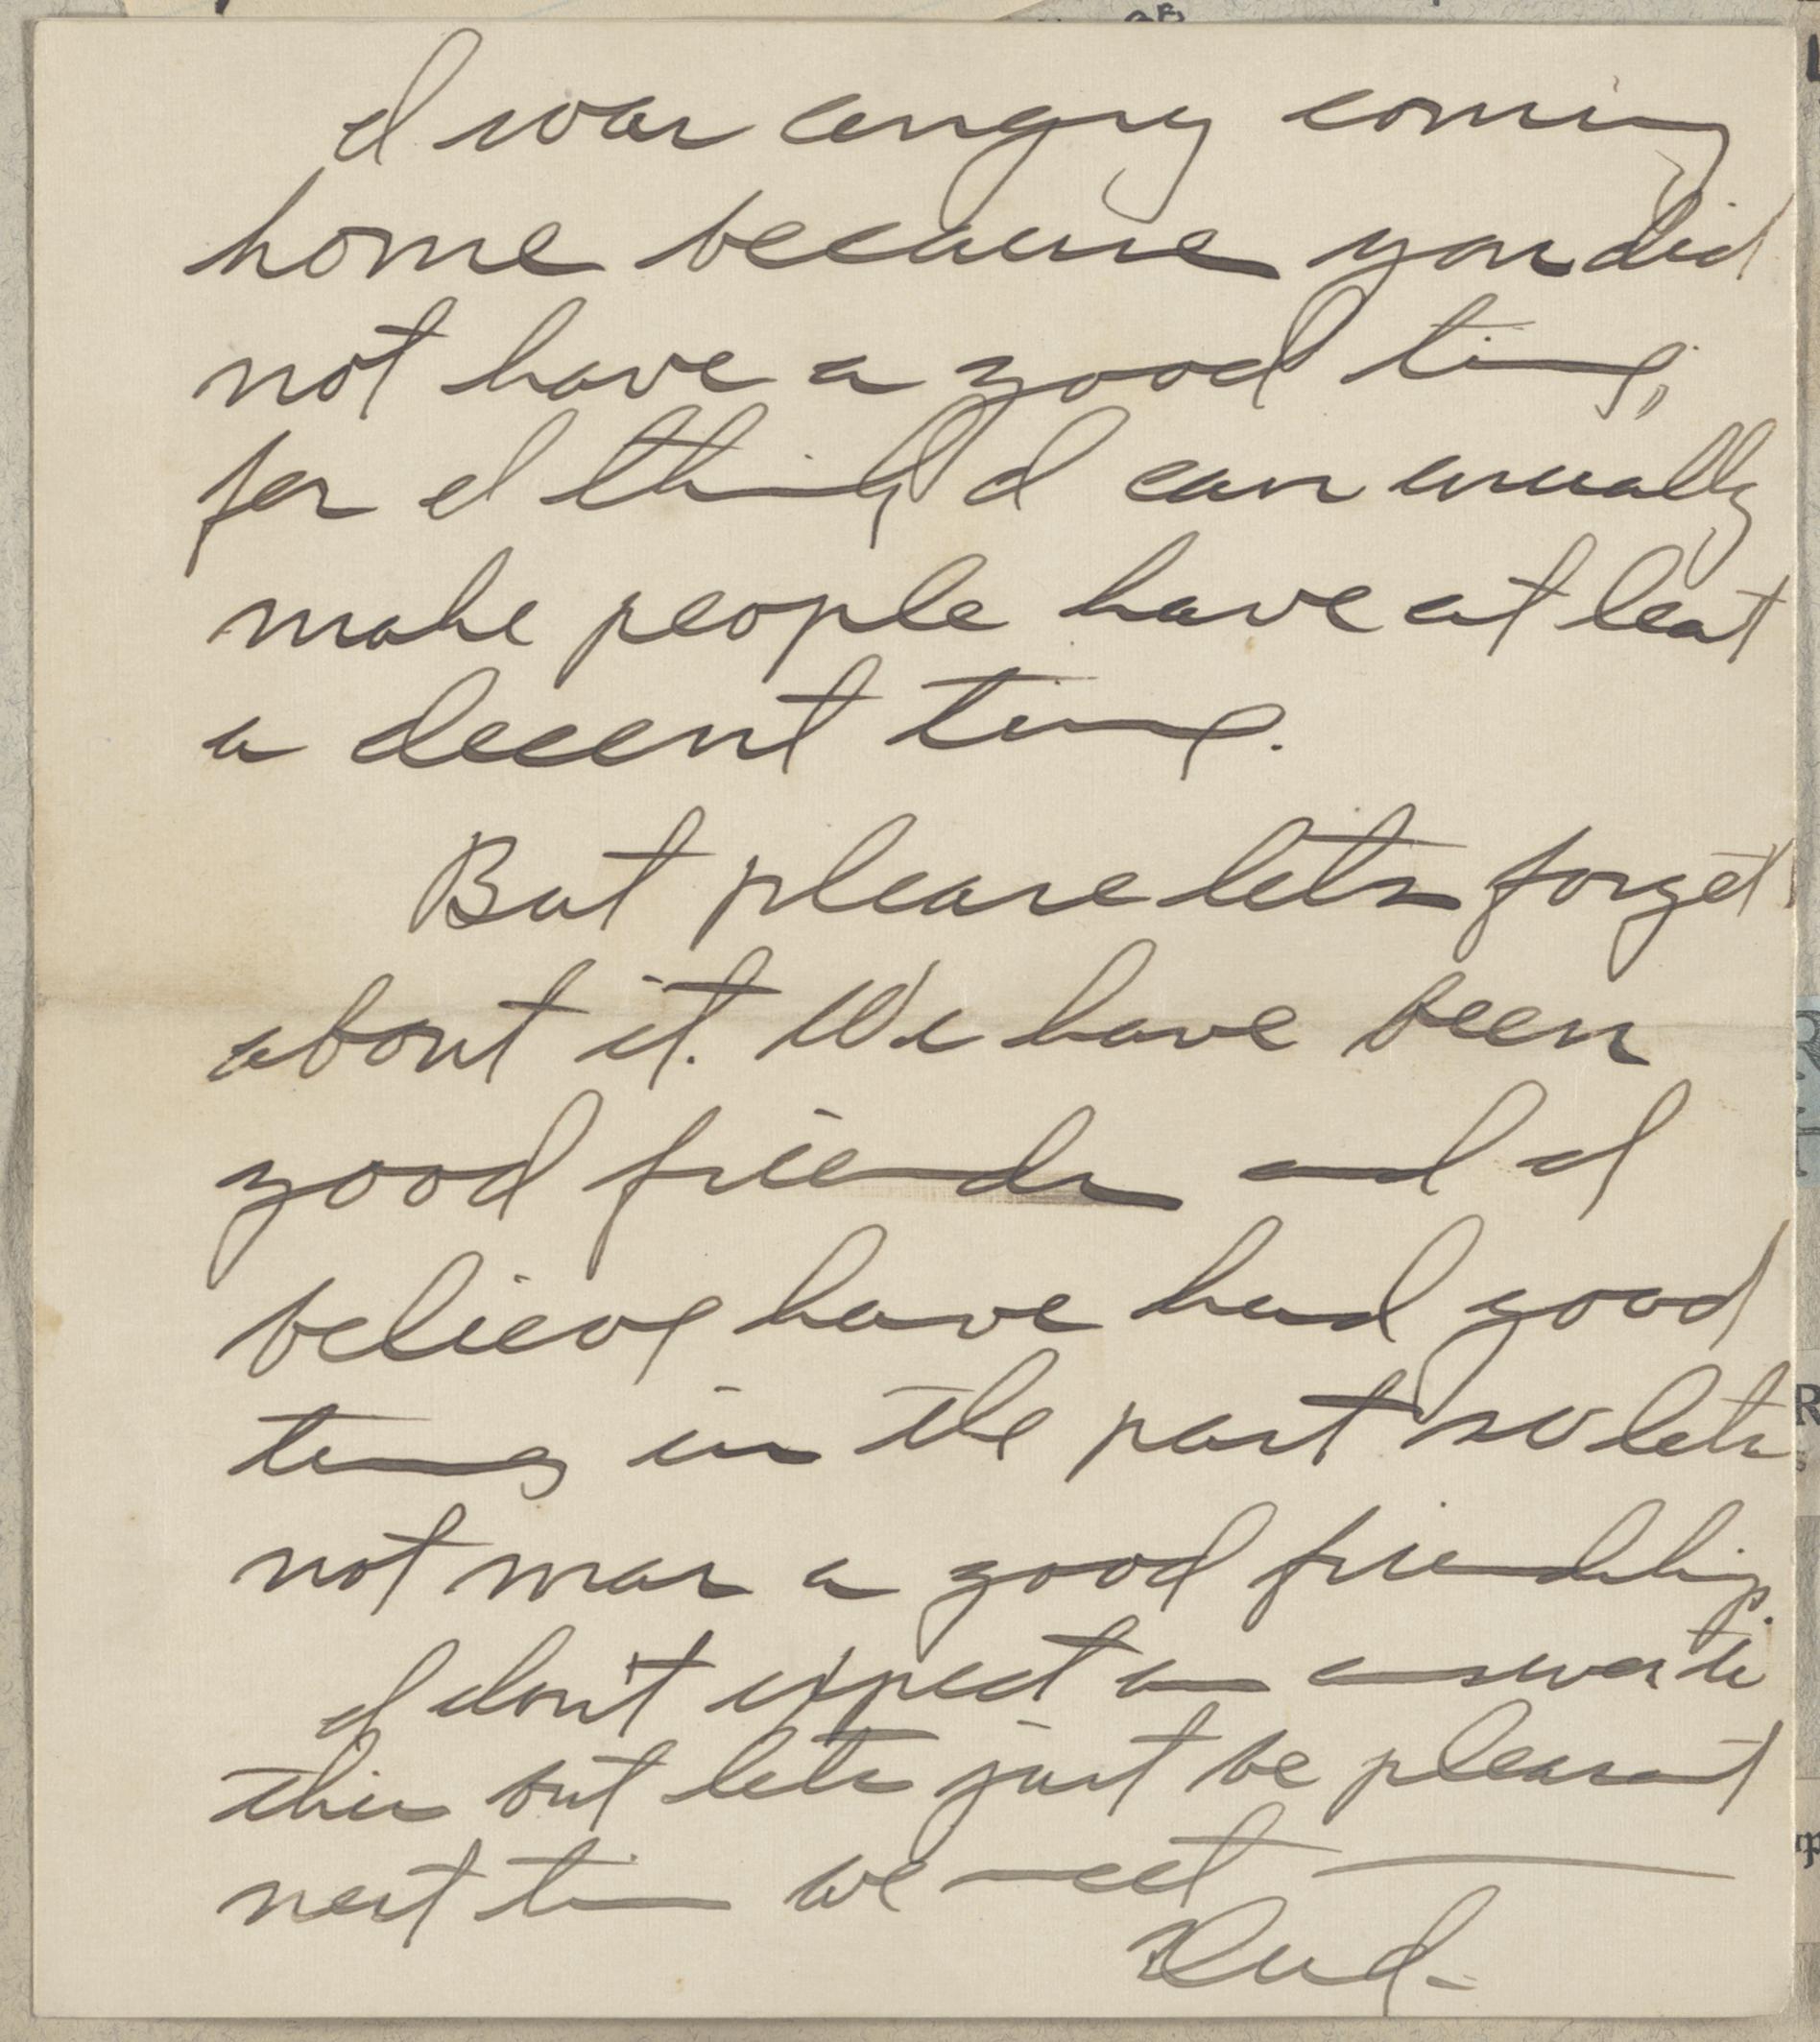 I was angry coming
home because you did
not have a good time,
for I think I can usually
make people have at least
a decent time.
But please lets forget
about it. We have been
good friends and I
believe have had good
times in the past so lets
not mar a good friendship.
I don't expect an answer to
this but lets just be pleasant
next time we meet —
Rud.